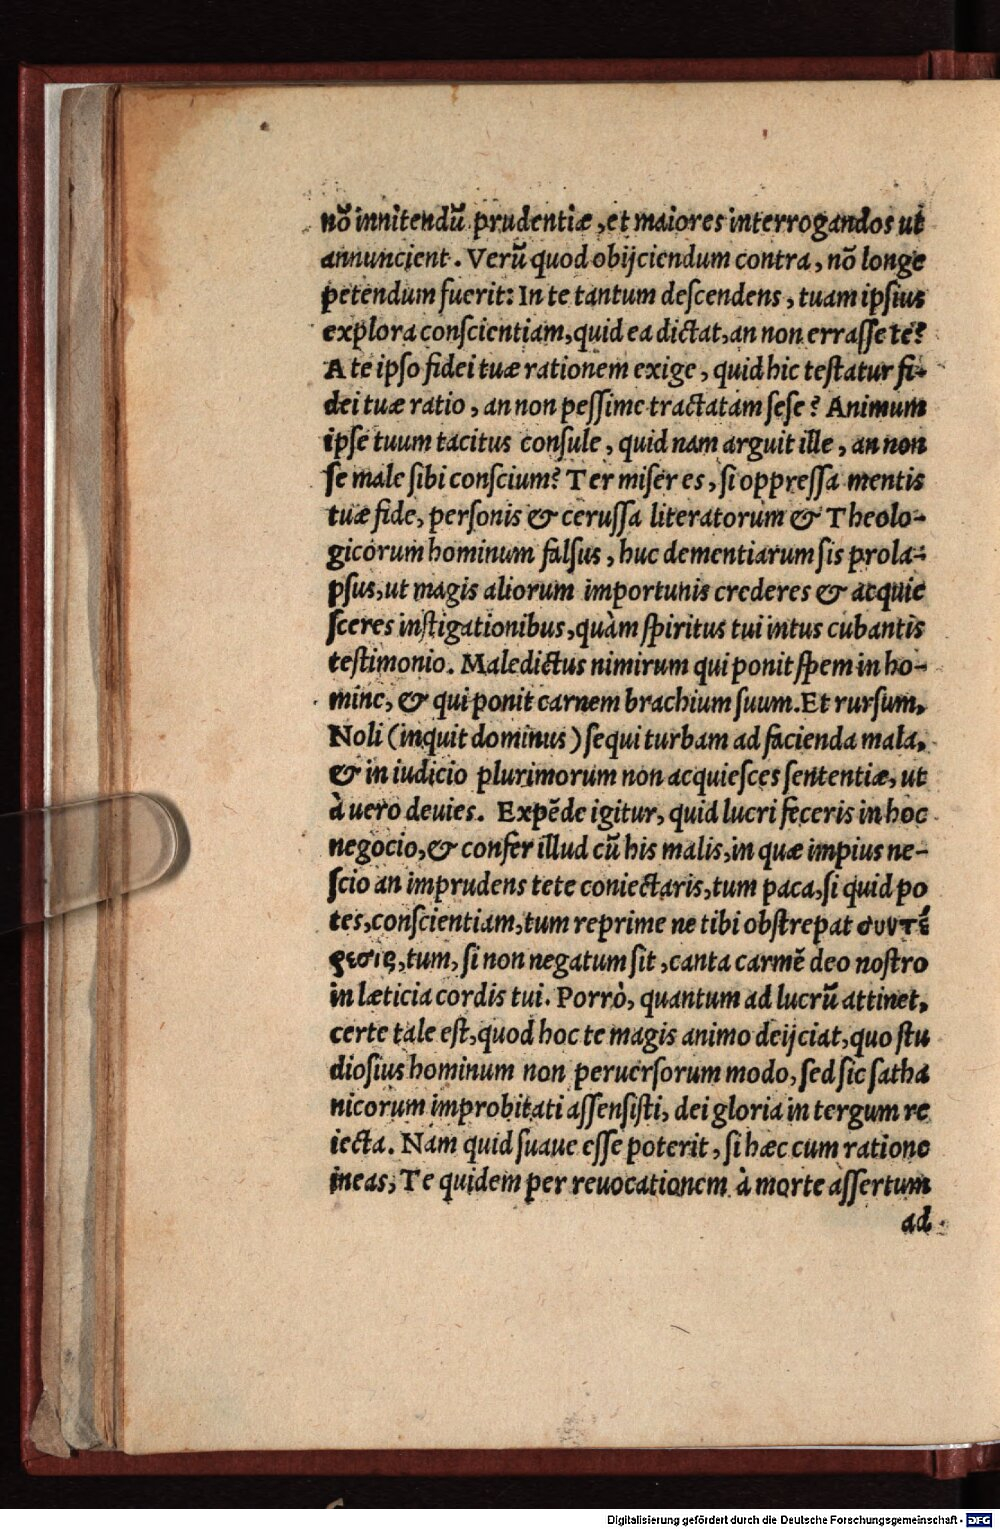 nõ innitendũ prudentiæ, et maiores interrogandos ut
annuncient. Verũ quod obijciendum contra, nõ longe
petendum fuerit: In te tantum deſcendens, tuam ipſius
explora conſcientiam, quid ea dictat, an non erraſſe te?
A te ipſo fidei tuæ rationem exige, quid hic teſtatur fi-
dei tuæ ratio, an non peſſime tractatam ſeſe? Animum
ipſe tuum tacitus conſule, quid nam arguit ille, an non
ſe male ſibi conſcium? Ter miſer es, ſi oppreſſa mentis
tuæ fide, perſonis & ceruſſa literatorum & Theolo-
gicorum hominum falſus, huc dementiarum ſis prola-
pſus, ut magis aliorum importunis crederes & acquie
ſceres inſtigationibus, quàm ſpiritus tui intus cubantis
teſtimonio. Maledictus nimirum qui ponit ſpem in ho-
mine, & qui ponit carnem brachium ſuum. Et rurſum,
Noli (inquit dominus) ſequi turbam ad facienda mala,
& in iudicio plurimorum non acquieſces ſententiæ, ut
à uero deuies. Expẽde igitur, quid lucri feceris in hoc
negocio, & confer illud cũ his malis, in quæ impius ne-
ſcio an imprudens tete coniectaris, tum paca, ſi quid po
tes, conſcientiam, tum reprime ne tibi obſtrepat συντέ
ρεσις, tum, ſi non negatum ſit, canta carmẽ deo noſtro
in læticia cordis tui. Porrò, quantum ad lucrũ attinet,
certe tale eſt, quod hoc te magis animo deijciat, quo ſtu
dioſius hominum non peruerſorum modo, ſed ſic ſatha
nicorum improbitati aſſenſiſti, dei gloria in tergum re
iecta. Nam quid ſuaue eſſe poterit, ſi hæc cum ratione
ineas, Te quidem per reuocationem à morte aſſertum
ad
Digitalisierung gefördert durch die Deutsche Forschungsgemeinschaft - DFG